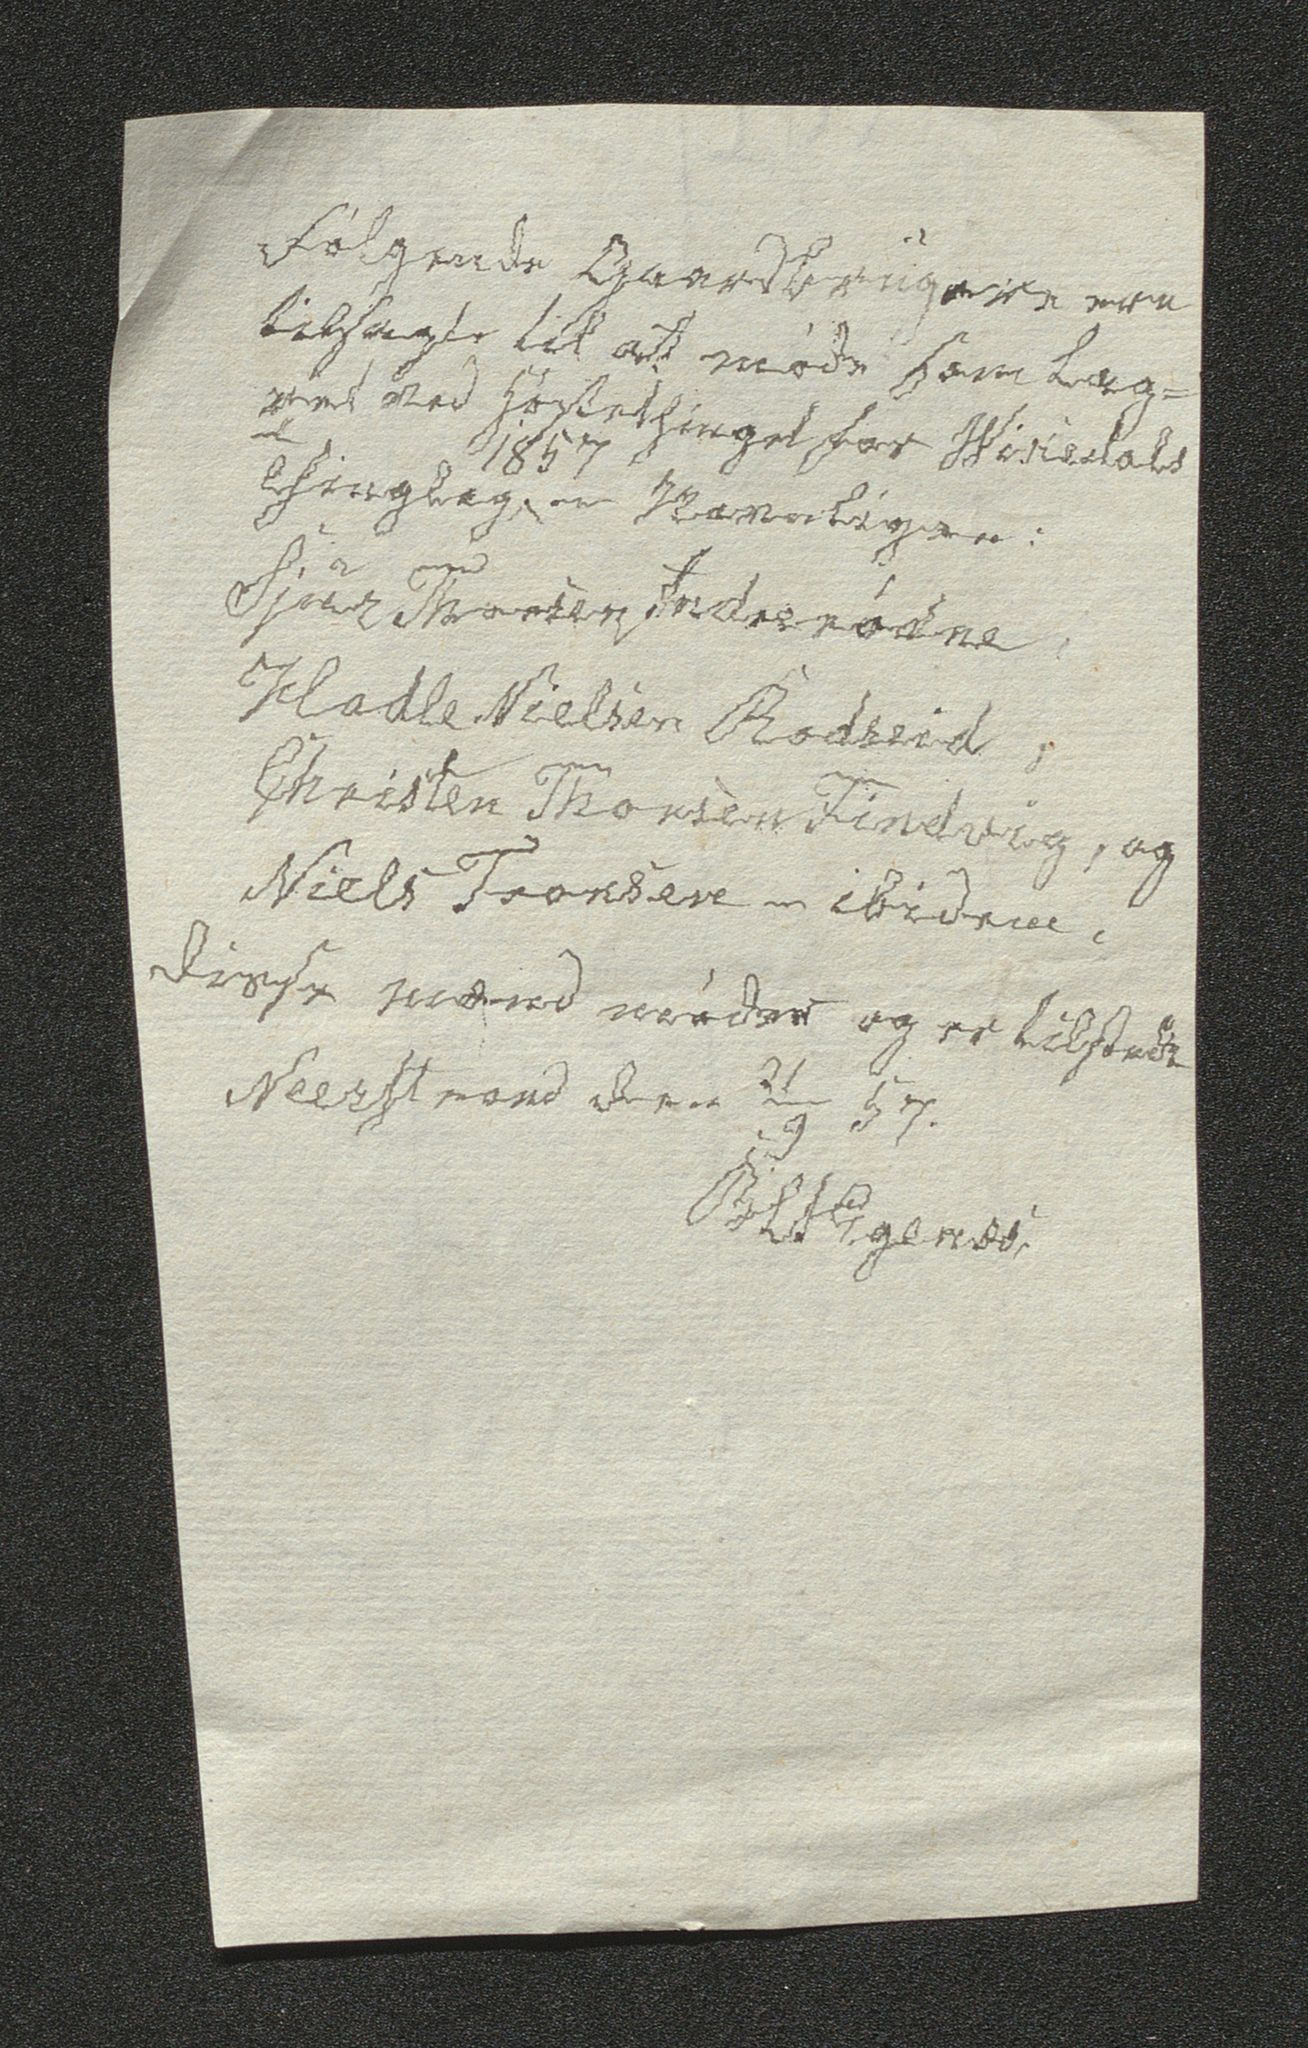 Følgende Gaardbrugere ere
tilsagte til at møde som Lag=
ret ved Høstethinget for Windedals
Thinglag, 1857 Navnligen:
Sjur Thorsen Indreødne,
Hadle Nielsen Rødseid,
Christen Thorsen Tindvig, og
Niels Tronsen ibidem,
disse mænd møder og er tilstede
Neerstrand den 21/9 57.